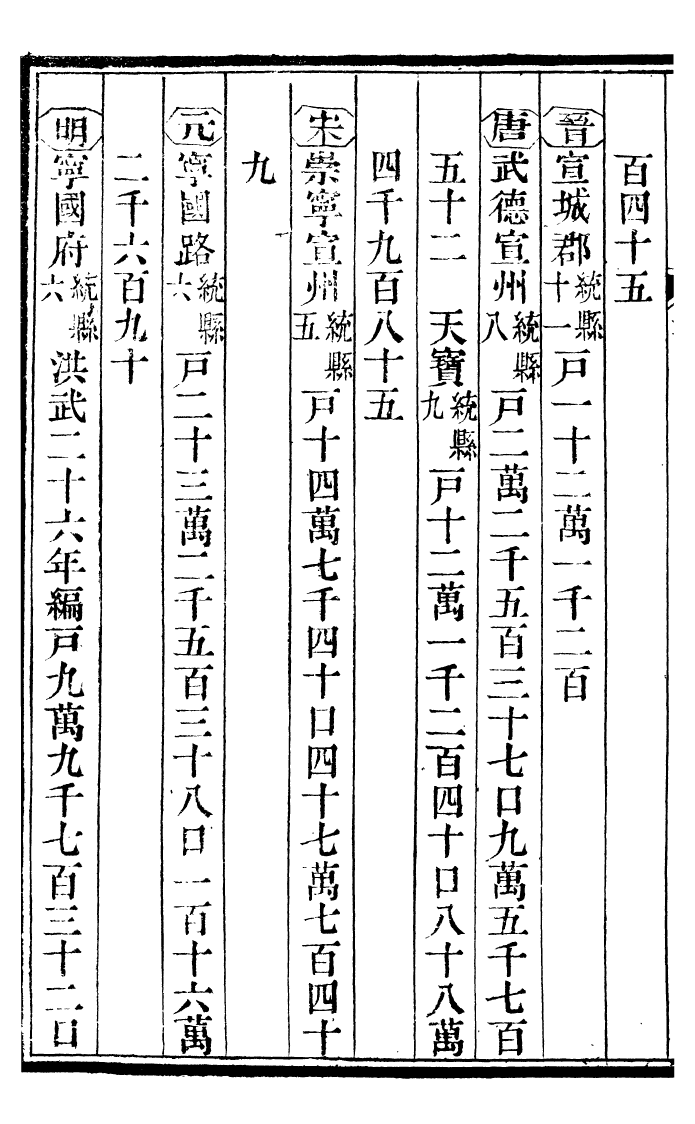 百四十五
晉宣城郡統縣十一戸一十二萬一千二百
唐武德宣州統縣八戸二萬二千五百三十七口九萬五千七百
五十二　天寶統縣九戸十二萬一千二百四十口八十八萬
四千九百八十五
宋崇寧宣州統縣五戸十四萬七千四十口四十七萬七百四十
九
元寧國路統縣六戸二十三萬二千五百三十八口一百十六萬
二千六百九十
明寧國府統縣六洪武二十六年編戸九萬九千七百三十二口